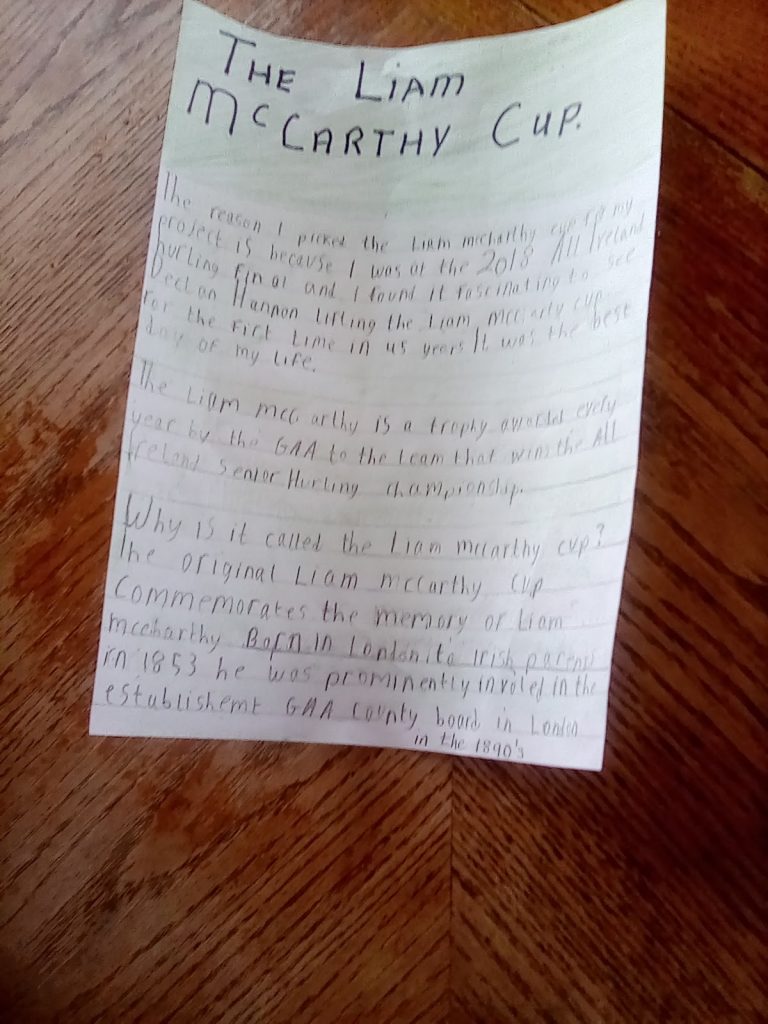 THE LIAM
McCARTHY CUP.
The reason I picked the Liam mccharthy cup for my
project is because I was at the 2018 All Ireland
hurling final and I found it fascinating to see
Declan Hannon lifting the Liam mccarty cup
for the first time in 45 years It was the best
day of my life.
The Liam mccarthy is a trophy awarded every
year by the GAA to the team that wins the All
Ireland Senior Hurling championship.
Why is it called the Liam mccarthy cup?
The original Liam mccarthy cup
Commemorates the memory of Liam
mccharthy Born in London, to Irish parents
in 1853 he was prominently involed in the
establishemt GAA County board in London
in the 1890's